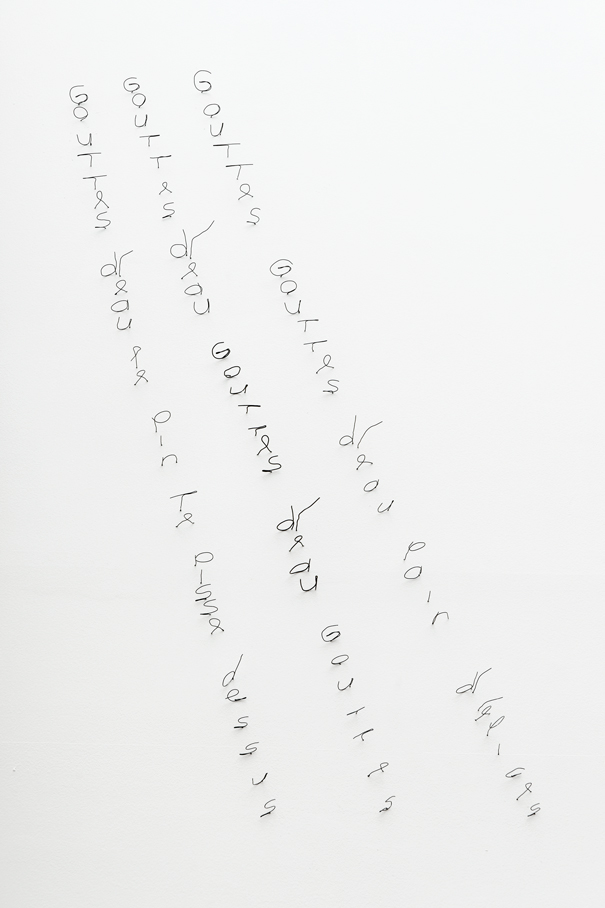 GouTTes d'eau le pin Te pisse dessus
GouTTes d'eau GouTTes d'eau GouTTes
GouTTes GouTTes d'eau pain d'épices